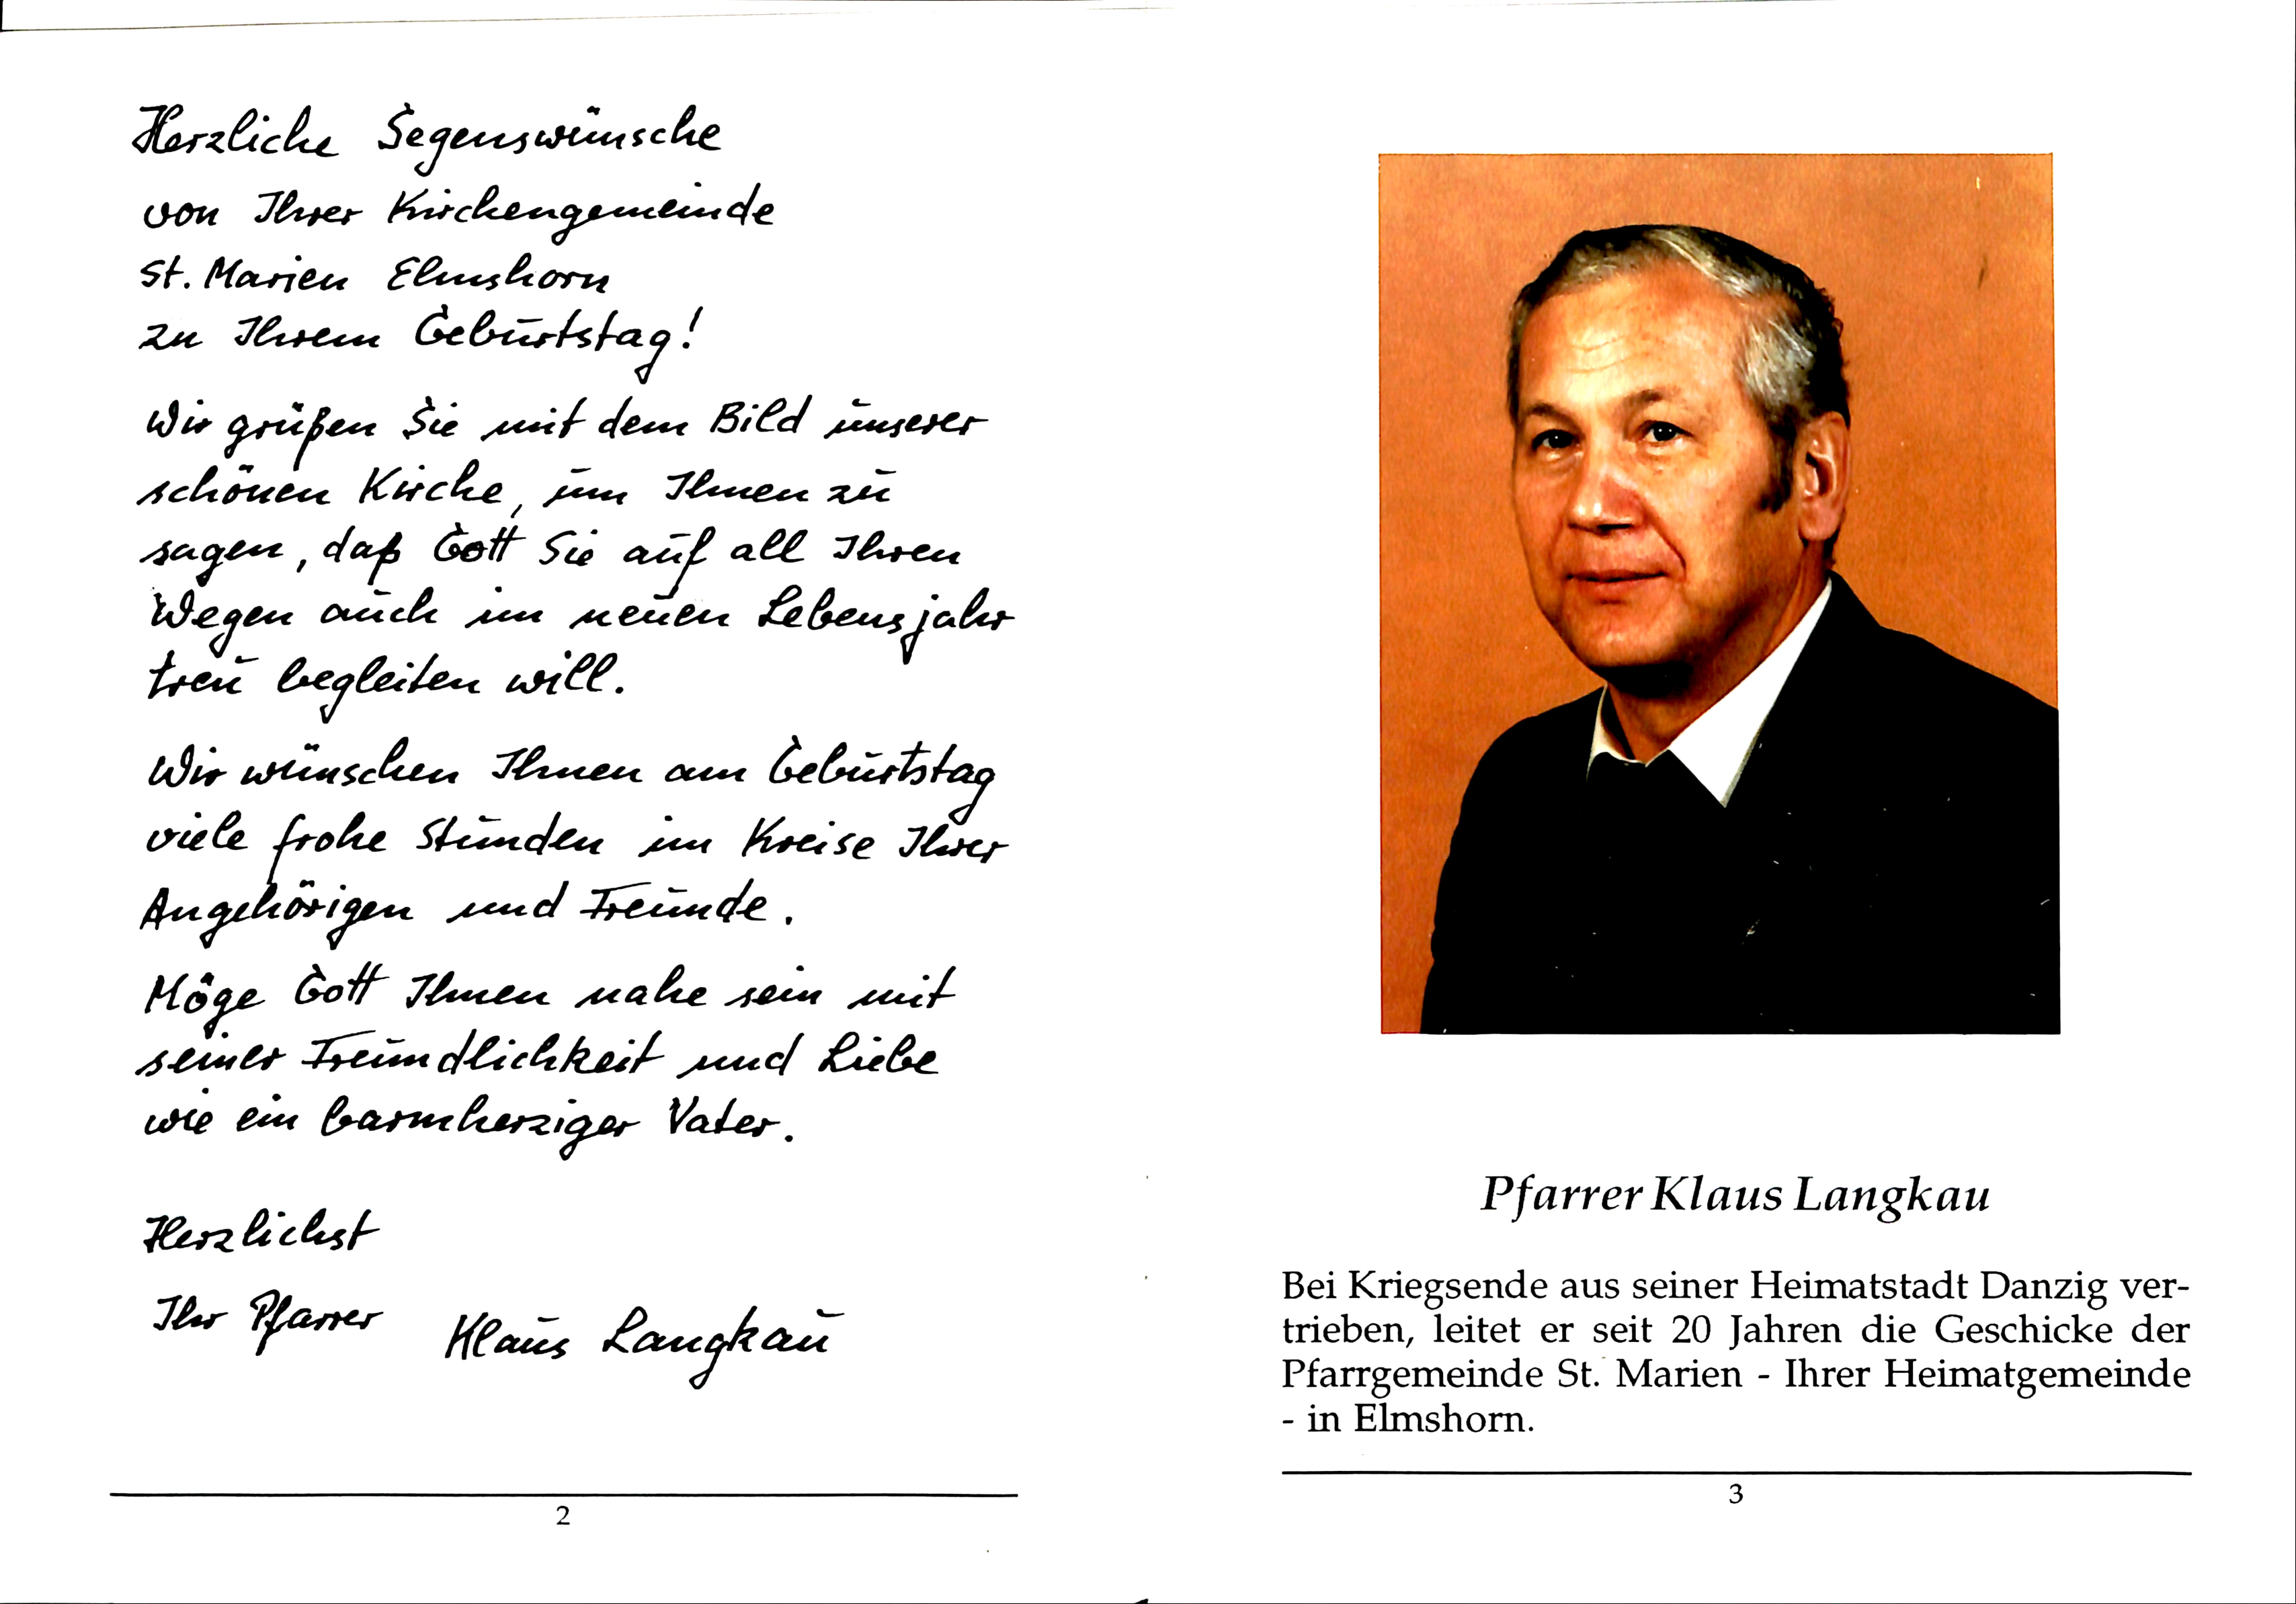 Herzliche Segenswünsche
von Ihrer Kirchengemeinde
St. Marien Elmshorn
zu Ihrem Geburtstag!
Wir grüßen Sie mit dem Bild unserer
schönen Kirche, um Ihnen zu
sagen, daß Gott Sie auf all Ihren
Wegen auch im neuen Lebensjahr
treu begleiten will.
Wir wünschen Ihnen am Geburtstag
viele frohe Stunden im Kreise Ihrer
Angehörigen und Freunde.
Möge Gott Ihnen nahe sein mit
seiner Freundlichkeit und Liebe
wie ein barmherziger Vater.
Herzlichst
Ihr Pfarrer Klaus Langkau
2
Pfarrer Klaus Langkau
Bei Kriegsende aus seiner Heimatstadt Danzig ver-
trieben, leitet er seit 20 Jahren die Geschicke der
Pfarrgemeinde St. Marien - Ihrer Heimatgemeinde
- in Elmshorn.
3